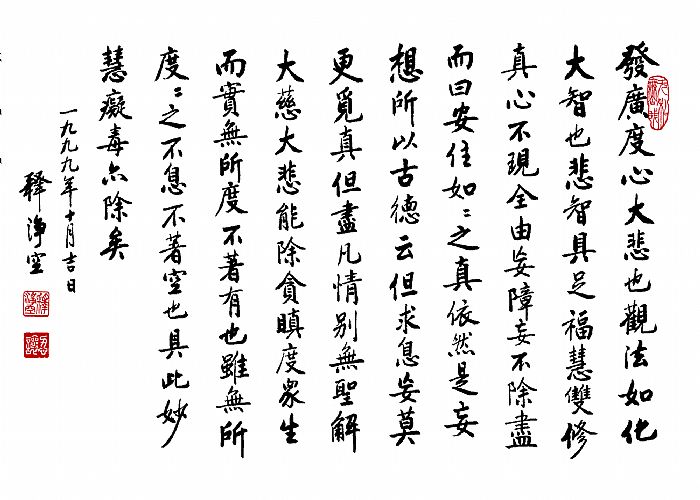 發廣度心大悲也觀法如化
大智也悲智具足福慧雙修
真心不現全由妄障妄不除盡
而曰安住如〻之真依然是妄
想所以古德云但求息妄莫
更覓真但盡凡情别無聖解
大慈大悲能除貪瞋度眾生
而實無所度不著有也雖無所
度〻之不息不著空也具此妙
慧癡毒亦除矣
一九九九年十月吉日
釋淨空